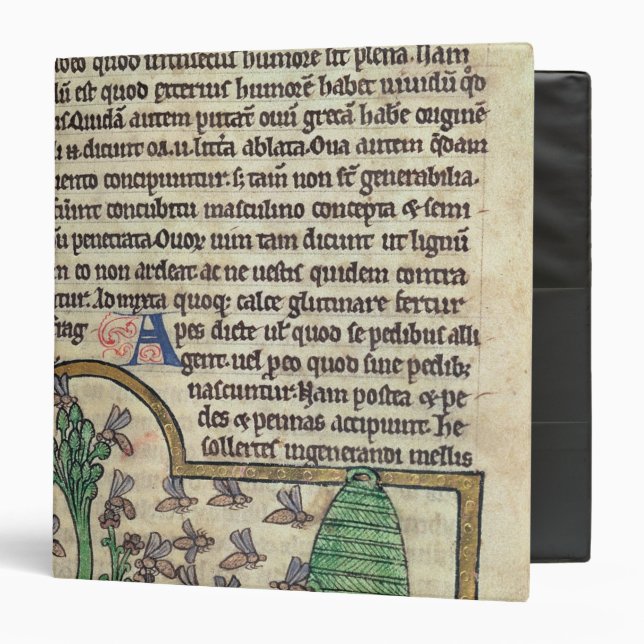 ideo quod intrisecus humore sit plena. Nam
est quod exterius humorē habet uiuidū q̄d
Quidā autem putāt ouū grecā habē originē
⁊ dicunt oa. u. littᵃ ablata. Oua autem q̄dam
uento concipiuntur. s; tam̄ non sc̄ generabilia.
concubitu masculino concepta ⁊ semi
penetrata. Ouoꝝ uim tam dicunt ut lignū
eo non ardeat ac ne uestis quidem contra
tur. Admixta quoq; calce glutinare fertur
frag
Apes dicte ul̓ quod se pedibus alli
gent. uel ꝓ eo quod sine pedib;
nascuntur. Nam postea ⁊ pe
des ⁊ pennas accipiunt. he
sollertes ingenerandi mellis